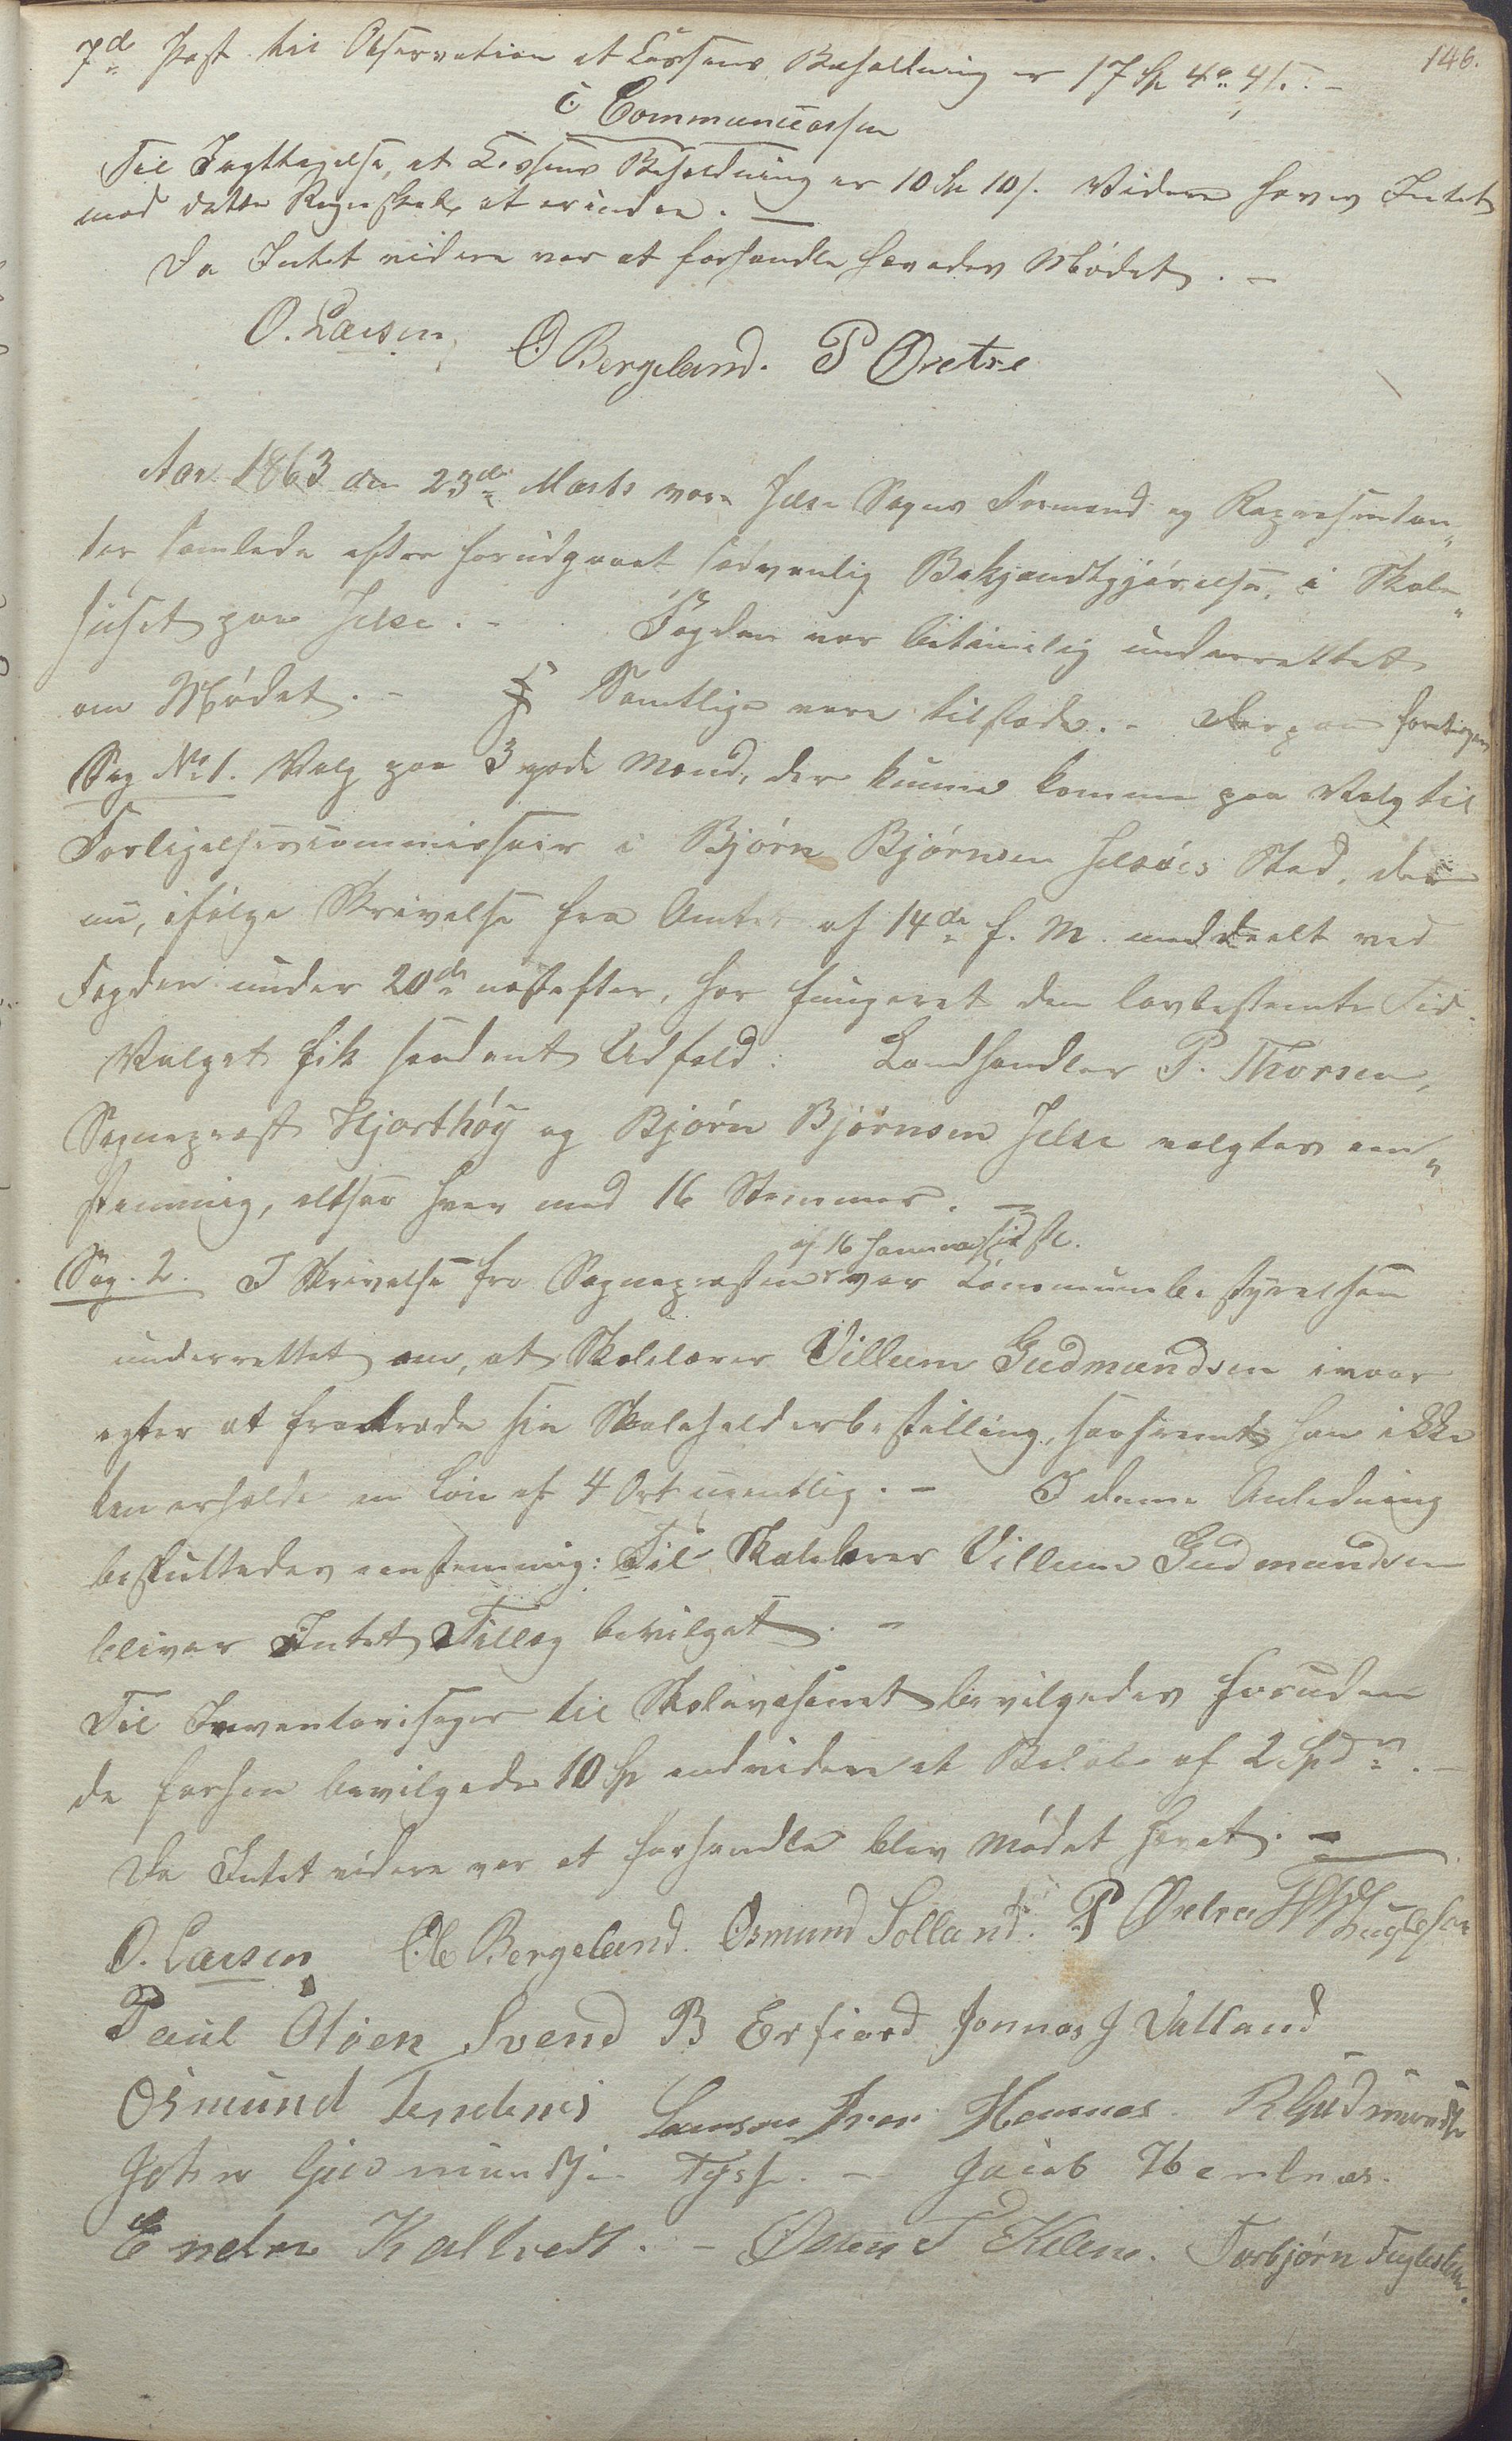 146.
7de Post til Observation at Cassens Beholdning er 17 Sp 4o 4 s. –
c. Communecassen
Til Iagttagelse, at Cassens Beholdning er 10 Sp 10 s. Videre haves Intet
mod dette Regnskab at erindre. —
Da Intet videre var at forhandle hævedes Mødet. –
O. Larsen O Bergeland. P Øvetre
Aar 1863 den 23de Marts vare Jelse Sogns Formænd og Repræsentan„
ter samlede efter forudgaaet sædvanlig Bekjendtgjørelse, i Skole„
huset paa Jelse. – Fogden var betimelig underrettet
om Mødet. – Samtlige vare tilstede. – Derpaa foretoges
Sag No 1. Valg paa 3 gode Mænd, der kunne komme paa Valg til
Forligelsescommissair i Bjørn Bjørnsen Jelsøes Sted, der
nu, ifølge Skrivelse fra Amtet af 14de f. M. meddeelt ved
Fogden under 20de næstefter, har fungeret den lovbestemte Tid.
Valget fik saadant Udfald: Landhandler P. Thorsen,
Sogneprest Hjorthøy og Bjørn Bjørnsen Jelse valgtes een„
stemmig, altsaa hver med 16 Stemmer. —
af 16 Januar sidstl.
Sag. 2. I Skrivelse fra Sognepresten var Communebestyrelsen
underrettet om, at Skolelærer Villum Gudmundsen ivaar
agter at fratræde sin Skoleholderbestilling, saafremt han ikke
kan erholde en Løn af 4 Ort ugentlig. – I denne Anledning
besluttedes eenstemmig: Til Skolelærer Villum Gudmundsen
bliver Intet Tillæg bevilget. –
Til Inventarisager til Skolevæsenet bevilgedes foruden
de forhen bevilgede 10 Sp endvidere et Beløb af 2 Spdr. –
Da Intet videre var at forhandle blev Mødet hævet. —
O. Larsen Ole Bergeland. Osmund Solland. P Øvetre
Paul Oløen Svend B Erfiord Jonnas J Valland
Osmund Tendenes Samson Iver Hamnes. R Gudmundse
John Gudmundsen Tysse. – Jacob Hebnes.
Endre Kaltvedt. – Østen T Eklene. Torbjørn Fuglestein.